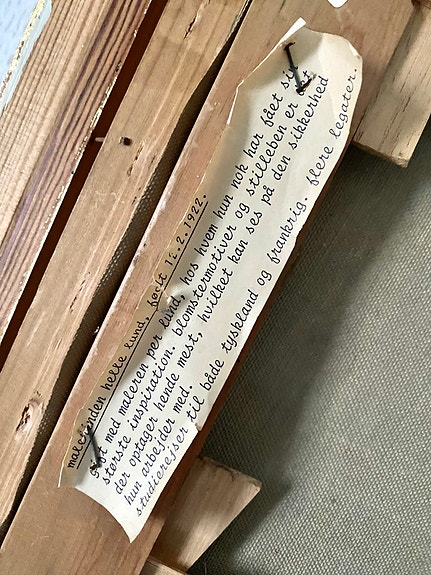 malerinden helle lund, født 12.2.1922.
gift med maleren per lund, hos hvem hun nok har fået sin
største inspiration. blomstermotiver og stilleben er det
der optager hende mest, hvilket kan ses på den sikkerhed
hun arbejder med.
studierejser til både tyskland og frankrig. flere legater.